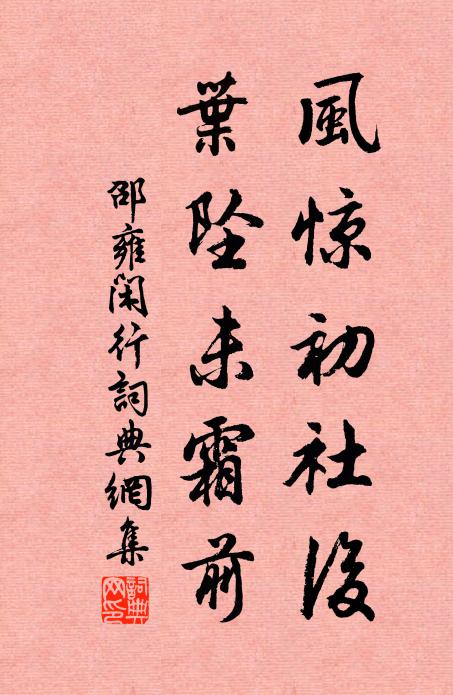 風惊初社後
葉墜未霜前
邵雍閑行詞典網集
詞典網印